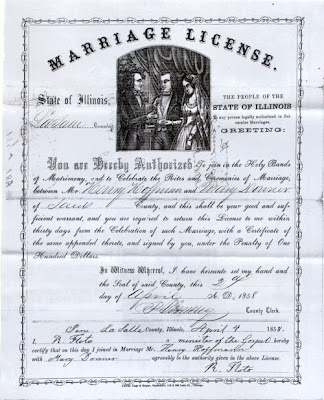 MARRIAGE LICENSE.
State of Illinois,
LaSalle County
THE PEOPLE OF THE
STATE OF ILLINOIS
To any person legally authorized to Sol-
emnize Marriages,
GREETING:
You are Hereby Authorized To join in the Holy Bands
of Matrimony, and to Celebrate the Rites and Ceremonies of Marriage,
between Mr. Henry Hoffman and Mary Donner
of said County, and this shall be your good and suf-
ficient warrant, and you are required to return this License to me within
thirty days from the Celebration of such Marriage, with a Certificate of
the same appended thereto, and signed by you, under the Penalty of One
Hundred Dollars.
In Witness Whereof, I have hereunto set my hand and
the Seal of said County, this 2
day of April A. D. 1858
County Clerk.
La Salle County, Illinois, April 4 1858.
I R. Floto a minister of the Gospel hereby
certify that on this day I joined in Marriage Mr. Henry Hoffman
with Mary Donner agreeably to the authority given in the above License.
R. Floto